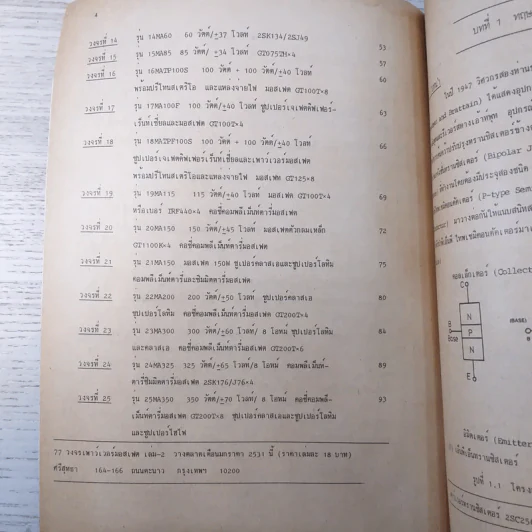 4
วงจรที่ 14 รุ่น 14MA60 60 วัตต์/±37 โวลท์ 2SK134/2SJ49 53
วงจรที่ 15 รุ่น 15MA85 85 วัตต์/ ±34 โวลท์ GT075ZH×4 57
วงจรที่ 16 รุ่น 16MATP100S 100 วัตต์ + 100 วัตต์/±40 โวลท์ 60
พร้อมปรีโทนสเตริโอ และแหล่งจ่ายไฟ มอสเฟต GT100T×8
วงจรที่ 17 รุ่น 17MA100F 100 วัตต์/±40 โวลท์ ซุปเปอร์เจเฟตดิฟเฟอร์- 63
เร็นท์เชี่ยลและมอสเฟต GT100T×4
วงจรที่ 18 รุ่น 18MATPF100S 100 วัตต์ + 100 วัตต์/±40 โวลท์ 66
ซุปเปอร์เจเฟตดิฟเฟอร์เร็นท์เชี่ยลและเพาเวอร์มอสเฟต
พร้อมปรีโทนสเตริโอและแหล่งจ่ายไฟ มอสเฟต GT125×8
วงจรที่ 19 รุ่น 19MA115 115 วัตต์/±40 โวลท์ มอสเฟต GT100T×4 69
หรือเบอร์ IRF440×4 คอชี่คอมพลีเม็นท์ตารี่มอสเฟต
วงจรที่ 20 รุ่น 20MA150 150 วัตต์/±45 โวลท์ มอสเฟตตัวถลมเหล็ก 72
GT1100K×4 คอชี่คอมพลีเม็นท์ตารี่มอสเฟต
วงจรที่ 21 รุ่น 21MA150 มอสเฟต 150W ซูเปอร์คลาสเอและซูปเปอร์โลทิม 75
คอมพลีเม็นท์ตารี่และซิมมิตตารี่มอสเฟต
วงจรที่ 22 รุ่น 22MA200 200 วัตต์/±50 โวลท์ ซุปเปอร์คลาสเอ 80
ซุปเปอร์โลทิม คอชี่คอมพลีเม็นท์ตารี่มอสเฟต GT200T×4
วงจรที่ 23 รุ่น 23MA300 300 วัตต์/±60 โวลท์/ 8 โอหม์ ซุปเปอร์โลทิม 84
และคลาสเอ คอชี่คอมพลีเม็นท์ตารี่มอสเฟต GT200T×6
วงจรที่ 24 รุ่น 24MA325 325 วัตต์/±65 โวลท์/8 โอหม์ คอมพลีเม็นท์- 89
ตารี่ซิมมิตตารี่มอสเฟต 2SK176/J76×4
วงจรที่ 25 รุ่น 25MA350 350 วัตต์/±70 โวลท์/ 8 โอหม์ คอชี่คอมพลี- 93
เม็นท์ตารี่มอสเฟต GT200T×8 ซุปเปอร์คลาสเอและซุปเปอร์โลทิม
และซุปเปอร์ไฮไฟ
77 วงจรเพาว์เวอร์มอสเฟต เล่ม-2 วางตลาดเดือนมกราคม 2531 นี้ (ราคาเล่มละ 18 บาท)
ศรีสุทธา 164-166 ถนนตะนาว กรุงเทพฯ 10200
บทที่ 1
ในปี 1947
(Bipolar
(P-type Sem
คอลเล็กเตอร์ (Collect
C
N
P
N
B
Base
E
(BASE)
B
อิมิตเตอร์ (Emitter
รูปที่ 1.1 โครง